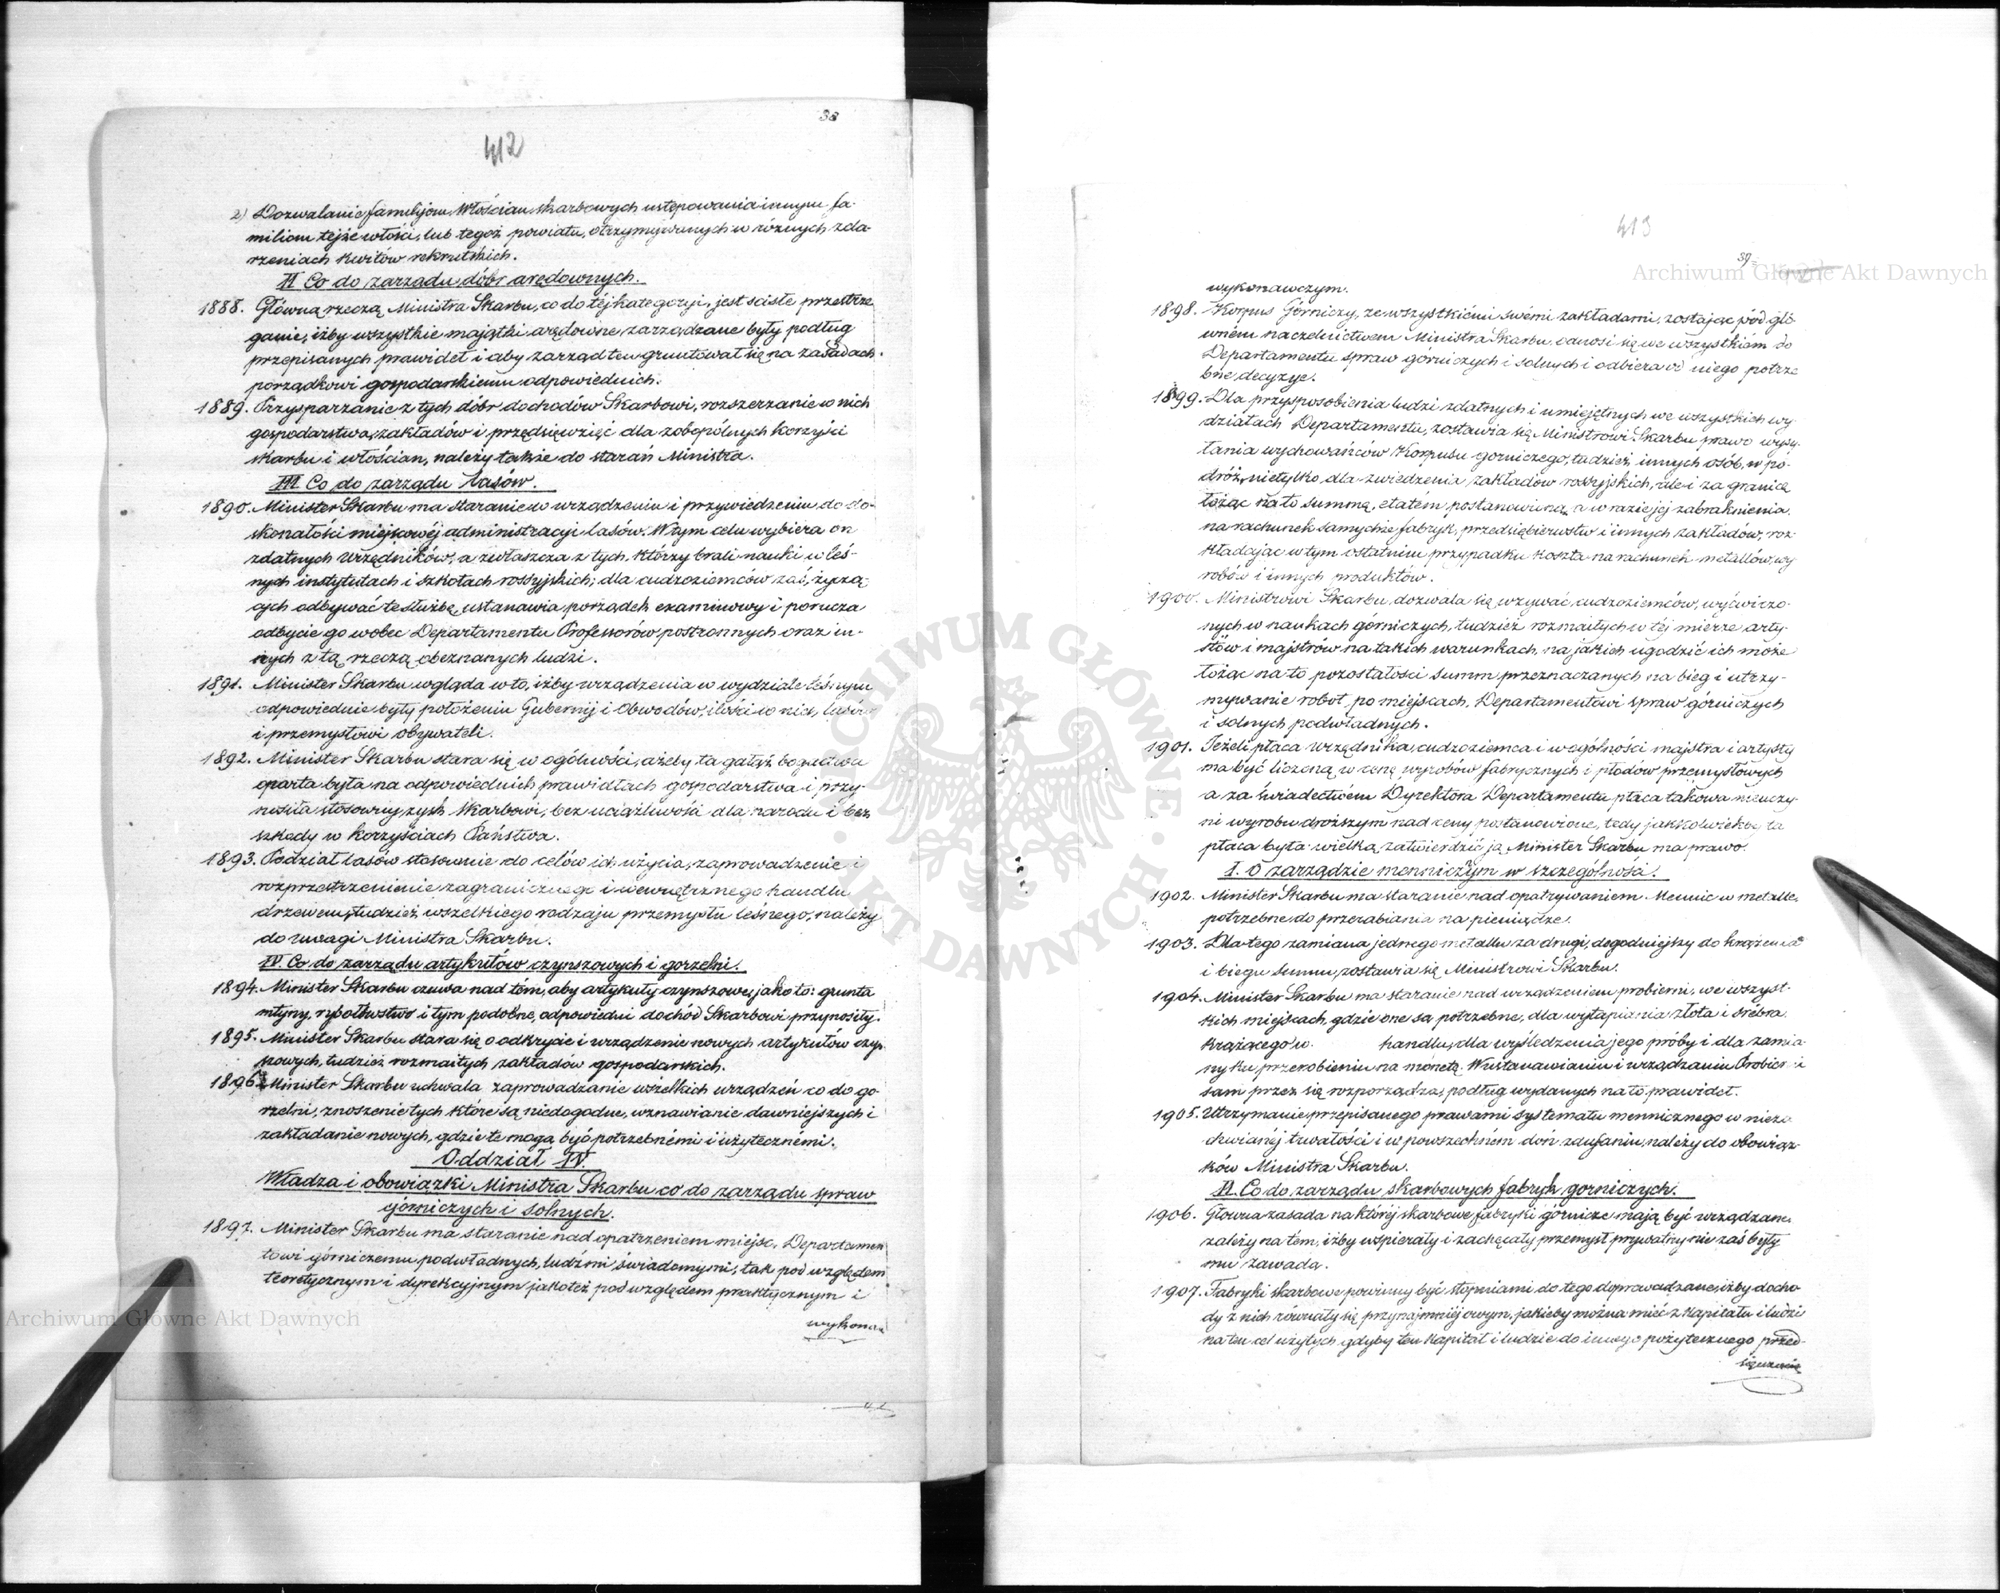 38
412
2) Dozwalanie familijom Włościan skarbowych ustępowania innym fa-
miliom tejże włości, lub tegoż powiatu, otrzymywanych w różnych zda-
rzeniach kwitów rekrutskich.
II Co do zarządu dóbr arędownych.
1888. Główną rzeczą Ministra Skarbu, co do téj kategoryi, jest ścisłe przestrze
ganie, iżby wszystkie majątki arędowne zarządzane były podług
przepisanych prawideł i aby zarząd ten gruntował się na zasadach
porządkowi gospodarskiemu odpowiednich.
1889. Przysparzanie z tych dóbr dochodów Skarbowi, rozszerzanie w nich
gospodarstwa, zakładów i przedsięwzięć dla zobopólnych korzyści
skarbu i włościan, należy także do starań Ministra.
III Co do zarządu lasów.
1890. Minister Skarbu ma staranie o urządzeniu i przywiedzeniu do do-
skonałości miejscowéj administracyi lasów. W tym celu wybiera on
zdatnych urzędników, a zwłaszcza z tych, którzy brali nauki w leś-
nych instytutach i szkołach rossyjskich; dla cudzoziemców zaś, życzą-
cych odbywać tę służbę, ustanawia porządek examinowy i porucza
odbycie go wobec Departamentu Professorów postronnych oraz in-
nych z tą rzeczą obeznanych ludzi.
1891. Minister Skarbu wgląda w to, iżby urządzenia w wydziale leśnym
odpowiednie były położeniu Gubernij i Obwodów, ilości w nich lasów
i przemysłowi obywateli.
1892. Minister Skarbu stara się w ogólności, ażeby ta gałąź bogactwa
oparta była na odpowiednich prawidłach gospodarstwa i przy-
nosiła stosowny zysk Skarbowi, bez uciążliwości dla narodu i bez
szkody w korzyściach Państwa.
1893. Podział lasów stosownie do celów ich użycia, zaprowadzenie i
rozprzestrzenienie zagranicznego i wewnętrznego handlu
drzewem, tudzież wszelkiego rodzaju przemysłu leśnego, należy
do uwagi Ministra Skarbu.
IV. Co do zarządu artykułów czynszowych i gorzelni.
1894. Minister Skarbu czuwa nad tém, aby artykuły czynszowe, jako to: grunta
młyny, rybołówstwo i tym podobne, odpowiedni dochód Skarbowi przynosiły.
1895. Minister Skarbu stara się o odkrycie i urządzenie nowych artykułów czyn
szowych, tudzież rozmaitych zakładów gospodarskich.
1896. Minister Skarbu uchwala zaprowadzanie wszelkich urządzeń co do go
rzelni, znoszenie tych które są niedogodne, wznawianie dawniejszych i
zakładanie nowych, gdzie te mogą być potrzebnémi i użytecznémi.
Oddział IV.
Władza i obowiązki Ministra Skarbu co do zarządu spraw
górniczych i solnych.
1897. Minister Skarbu ma staranie nad opatrzeniem miejsc, Departamen
towi górniczemu podwładnych, ludźmi świadomymi, tak pod względem
teoretycznym i dyrekcyjnym jakoteż pod względem praktycznym i
wykonaw
413
39
wykonawczym.
1898. Korpus Górniczy, ze wszystkiémi swémi zakładami, zostając pod głó
wném naczelnictwem Ministra Skarbu, odnosi się we wszystkiém do
Departamentu spraw górniczych i solnych i odbiera od niego potrze
bne decyzye.
1899. Dla przysposobienia ludzi zdatnych i umiejętnych we wszystkich wy
działach Departamentu, zostawia się Ministrowi Skarbu prawo wysy
łania wychowańców Korpusu górniczego, tudzież innych osób, w po-
dróż, nietylko dla zwiedzenia zakładów rossyjskich, ale i za granicę
łożąc na to summę, etatem postanowioną, a w razie jej zabraknienia
na rachunek samychże fabryk, przedsiębierstw i innych zakładów, roz-
kładając w tym ostatnim przypadku koszta na rachunek metallów, wy
robów i innych produktów.
1900. Ministrowi Skarbu, dozwala się wzywać cudzoziemców, wyćwiczo-
nych w naukach górniczych, tudzież rozmaitych w téj mierze arty-
stów i majstrów na takich warunkach, na jakich ugodzić ich może
łożąc na to pozostałości summ przeznaczanych na bieg i utrzy-
mywanie robot, po miejscach, Departamentowi spraw górniczych
i solnych podwładnych.
1901. Jeżeli płaca urzędnika, cudzoziemca i w ogólności majstra i artysty
ma być liczoną w cenę wyrobów fabrycznych i płodów przemysłowych
a za świadectwem Dyrektora Departamentu płaca takowa nieuczy-
ni wyrobu droższym nad ceny postanowione, tedy jakkolwiekby ta
płaca była wielką, zatwierdzić ją Minister Skarbu ma prawo.
I. O zarządzie menniczym w szczególności.
1902. Minister Skarbu ma staranie nad opatrywaniem Mennic w metalle,
potrzebne do przerabiania na pieniądze.
1903. Dla tego zamiana jednego metallu za drugi, dogodniejszy do krążenia
i biegu summ, zostawia się Ministrowi Skarbu.
1904. Minister Skarbu ma staranie nad urządzeniem probierni, we wszyst-
kich miejscach, gdzie one są potrzebne, dla wytapiania złota i srebra
krążącego w handlu, dla wyśledzenia jego próby i dla zamia
ny ku przerobieniu na monetę. W ustanawianiu i urządzaniu Probierni
sam przez się rozporządza, podług wydanych na to prawideł.
1905. Utrzymanie przepisanego prawami systematu menniczego w nieza
chwianéj trwałości i w powszechném doń zaufaniu, należy do obowiąz-
ków Ministra Skarbu.
II. Co do zarządu skarbowych fabryk gorniczych.
1906. Główna zasada na której skarbowe fabryki górnicze mają być urządzane
zależy na tem, iżby wspierały i zachęcały przemysł prywatny nie zaś były
mu zawadą.
1907. Fabryki skarbowe powinny być stopniami do tego doprowadzane, iżby docho
dy z nich równały się przynajmniej owym, jakieby można mieć z kapitału i ludzi
na ten cel użytych, gdyby ten kapitał i ludzie do innego pożytecznego przed-
sięwzięcia
Archiwum Główne Akt Dawnych
Archiwum Główne Akt Dawnych
ARCHIWUM GŁÓWNE AKT DAWNYCH